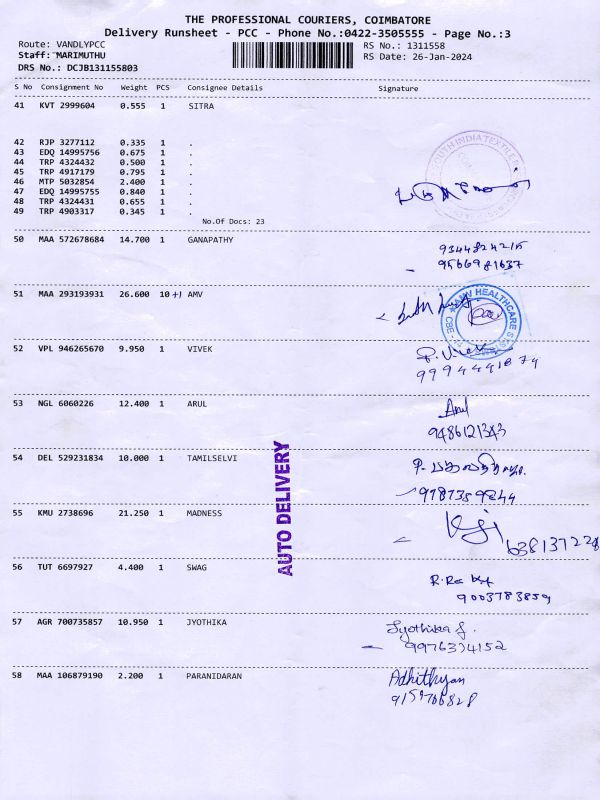 THE PROFESSIONAL COURIERS, COIMBATORE
Delivery Runsheet - PCC - Phone No.:0422-3505555 - Page No.:3
Route: VANDLYPCC RS No.: 1311558
Staff: MARIMUTHU RS Date: 26-Jan-2024
DRS No.: DCJB131155803
S No Consignment No Weight PCS Consignee Details Signature
41 KVT 2999604 0.555 1 SITRA
42 RJP 3277112 0.335 1 .
43 EDQ 14995756 0.675 1 .
44 TRP 4324432 0.500 1 .
45 TRP 4917179 0.795 1 .
46 MTP 5032854 2.400 1 .
47 EDQ 14995755 0.840 1 .
48 TRP 4324431 0.655 1 .
49 TRP 4903317 0.345 1 .
No.Of Docs: 23
50 MAA 572678684 14.700 1 GANAPATHY
9566981637
51 MAA 293193931 26.600 10 +1 AMV
AMV HEALTHCARE
52 VPL 946265670 9.950 1 VIVEK
9994441874
53 NGL 6060226 12.400 1 ARUL
Arul
9486121343
54 DEL 529231834 10.000 1 TAMILSELVI
AUTO DELIVERY
55 KMU 2738696 21.250 1 MADNESS
56 TUT 6697927 4.400 1 SWAG
9003783859
57 AGR 700735857 10.950 1 JYOTHIKA
Jyothika
9976374152
58 MAA 106879190 2.200 1 PARANIDARAN
Adhithyan